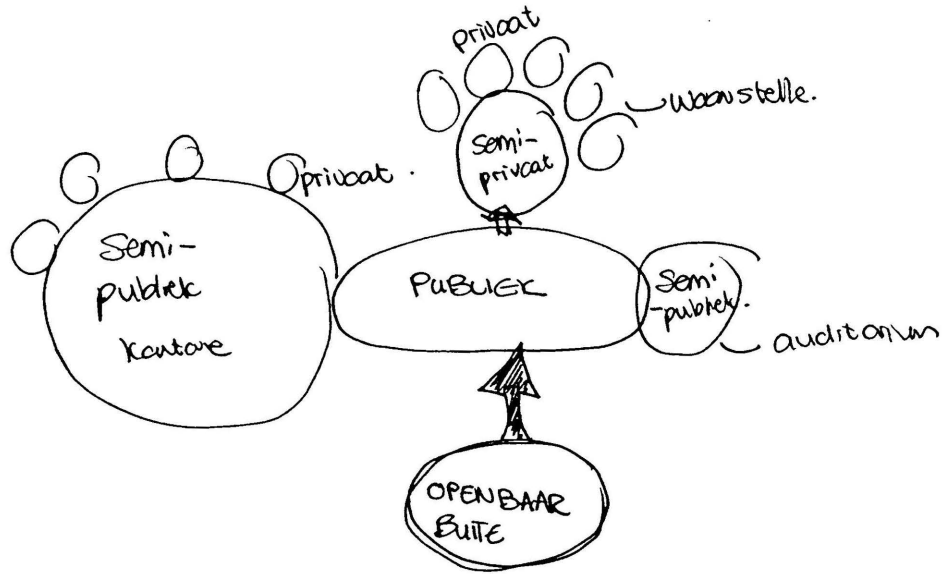 privaat
woonstelle.
semi-
privaat
privaat.
Semi-
publiek
kantore
PUBLIEK
Semi
-publiek.
auditorium
OPENBAAR
BUITE